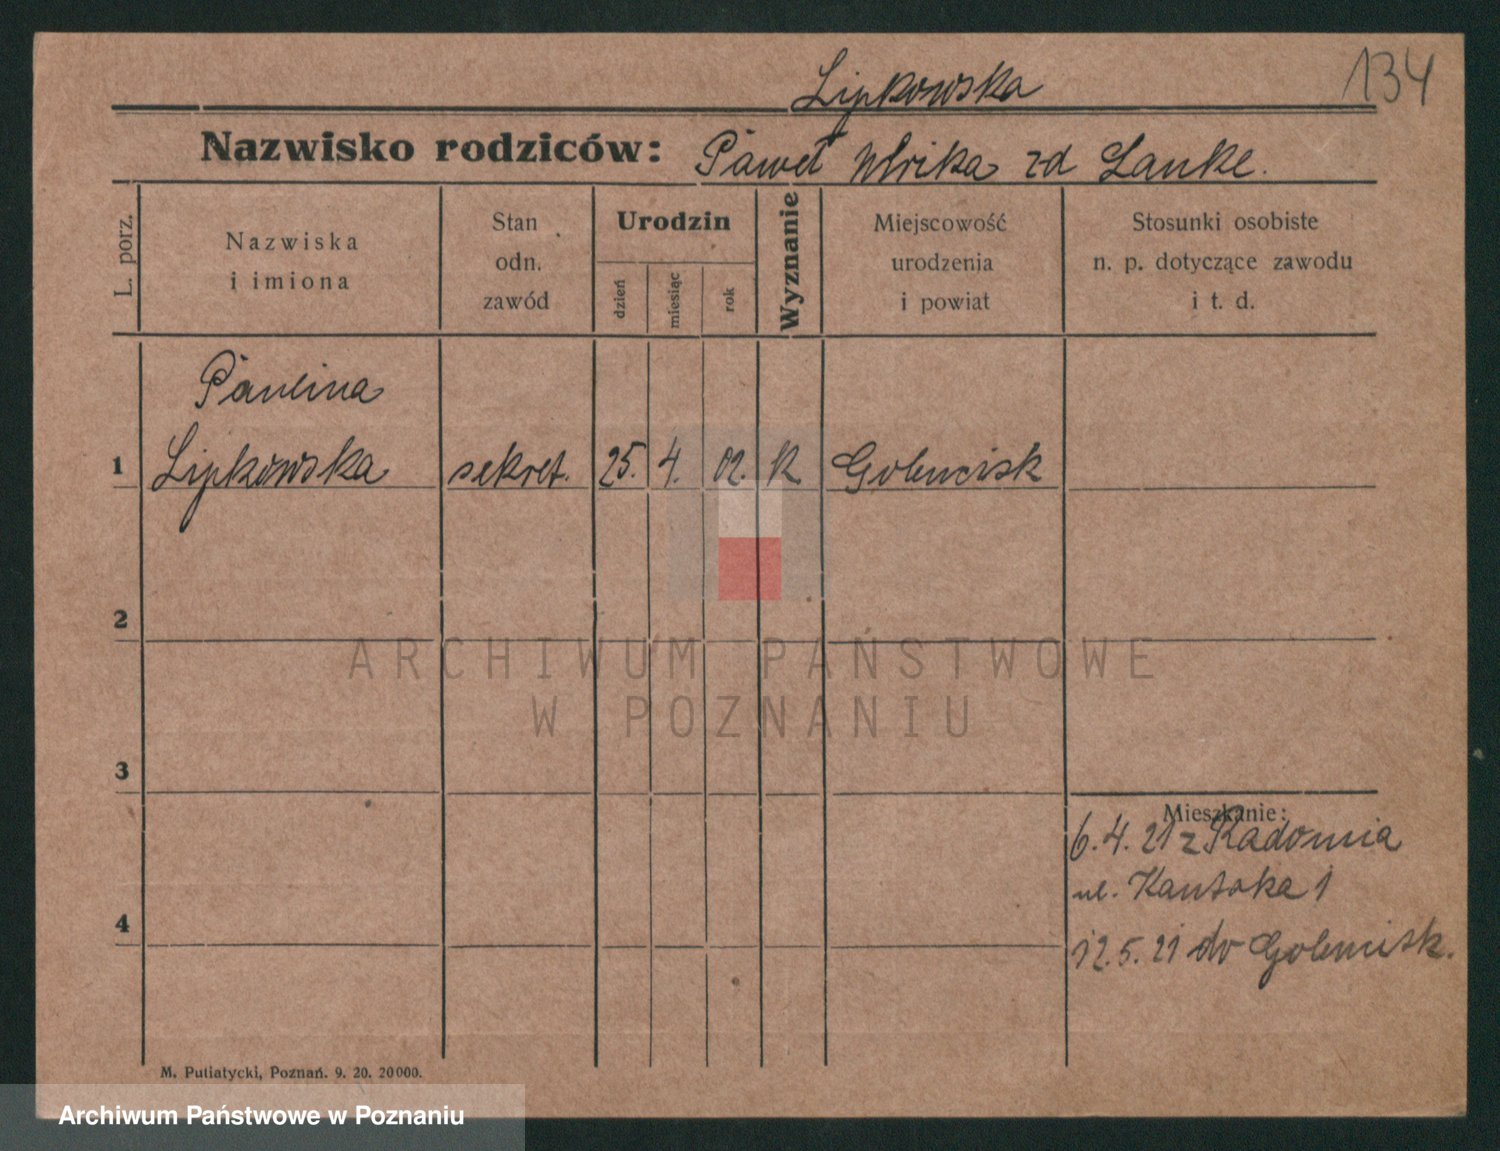 134
Lipkowska
Nazwisko rodziców: Paweł Ulrika zd Lanke.
L. porz.
Nazwiska
i imiona
Stan
odn.
zawód
Urodzin
dzień
miesiąc
rok
Wyznanie
Miejscowość
urodzenia
i powiat
Stosunki osobiste
n. p. dotyczące zawodu
i t. d.
Paulina
1 Lipkowska sekret. 25. 4. 02. K
2
3
4
Mieszkanie:
6.4.21 z Radomia
ul. 1
12.5.21 do
ARCHIWUM PAŃSTWOWE
W POZNANIU
M. Putiatycki, Poznań. 9. 20. 20000.
Archiwum Państwowe w Poznaniu